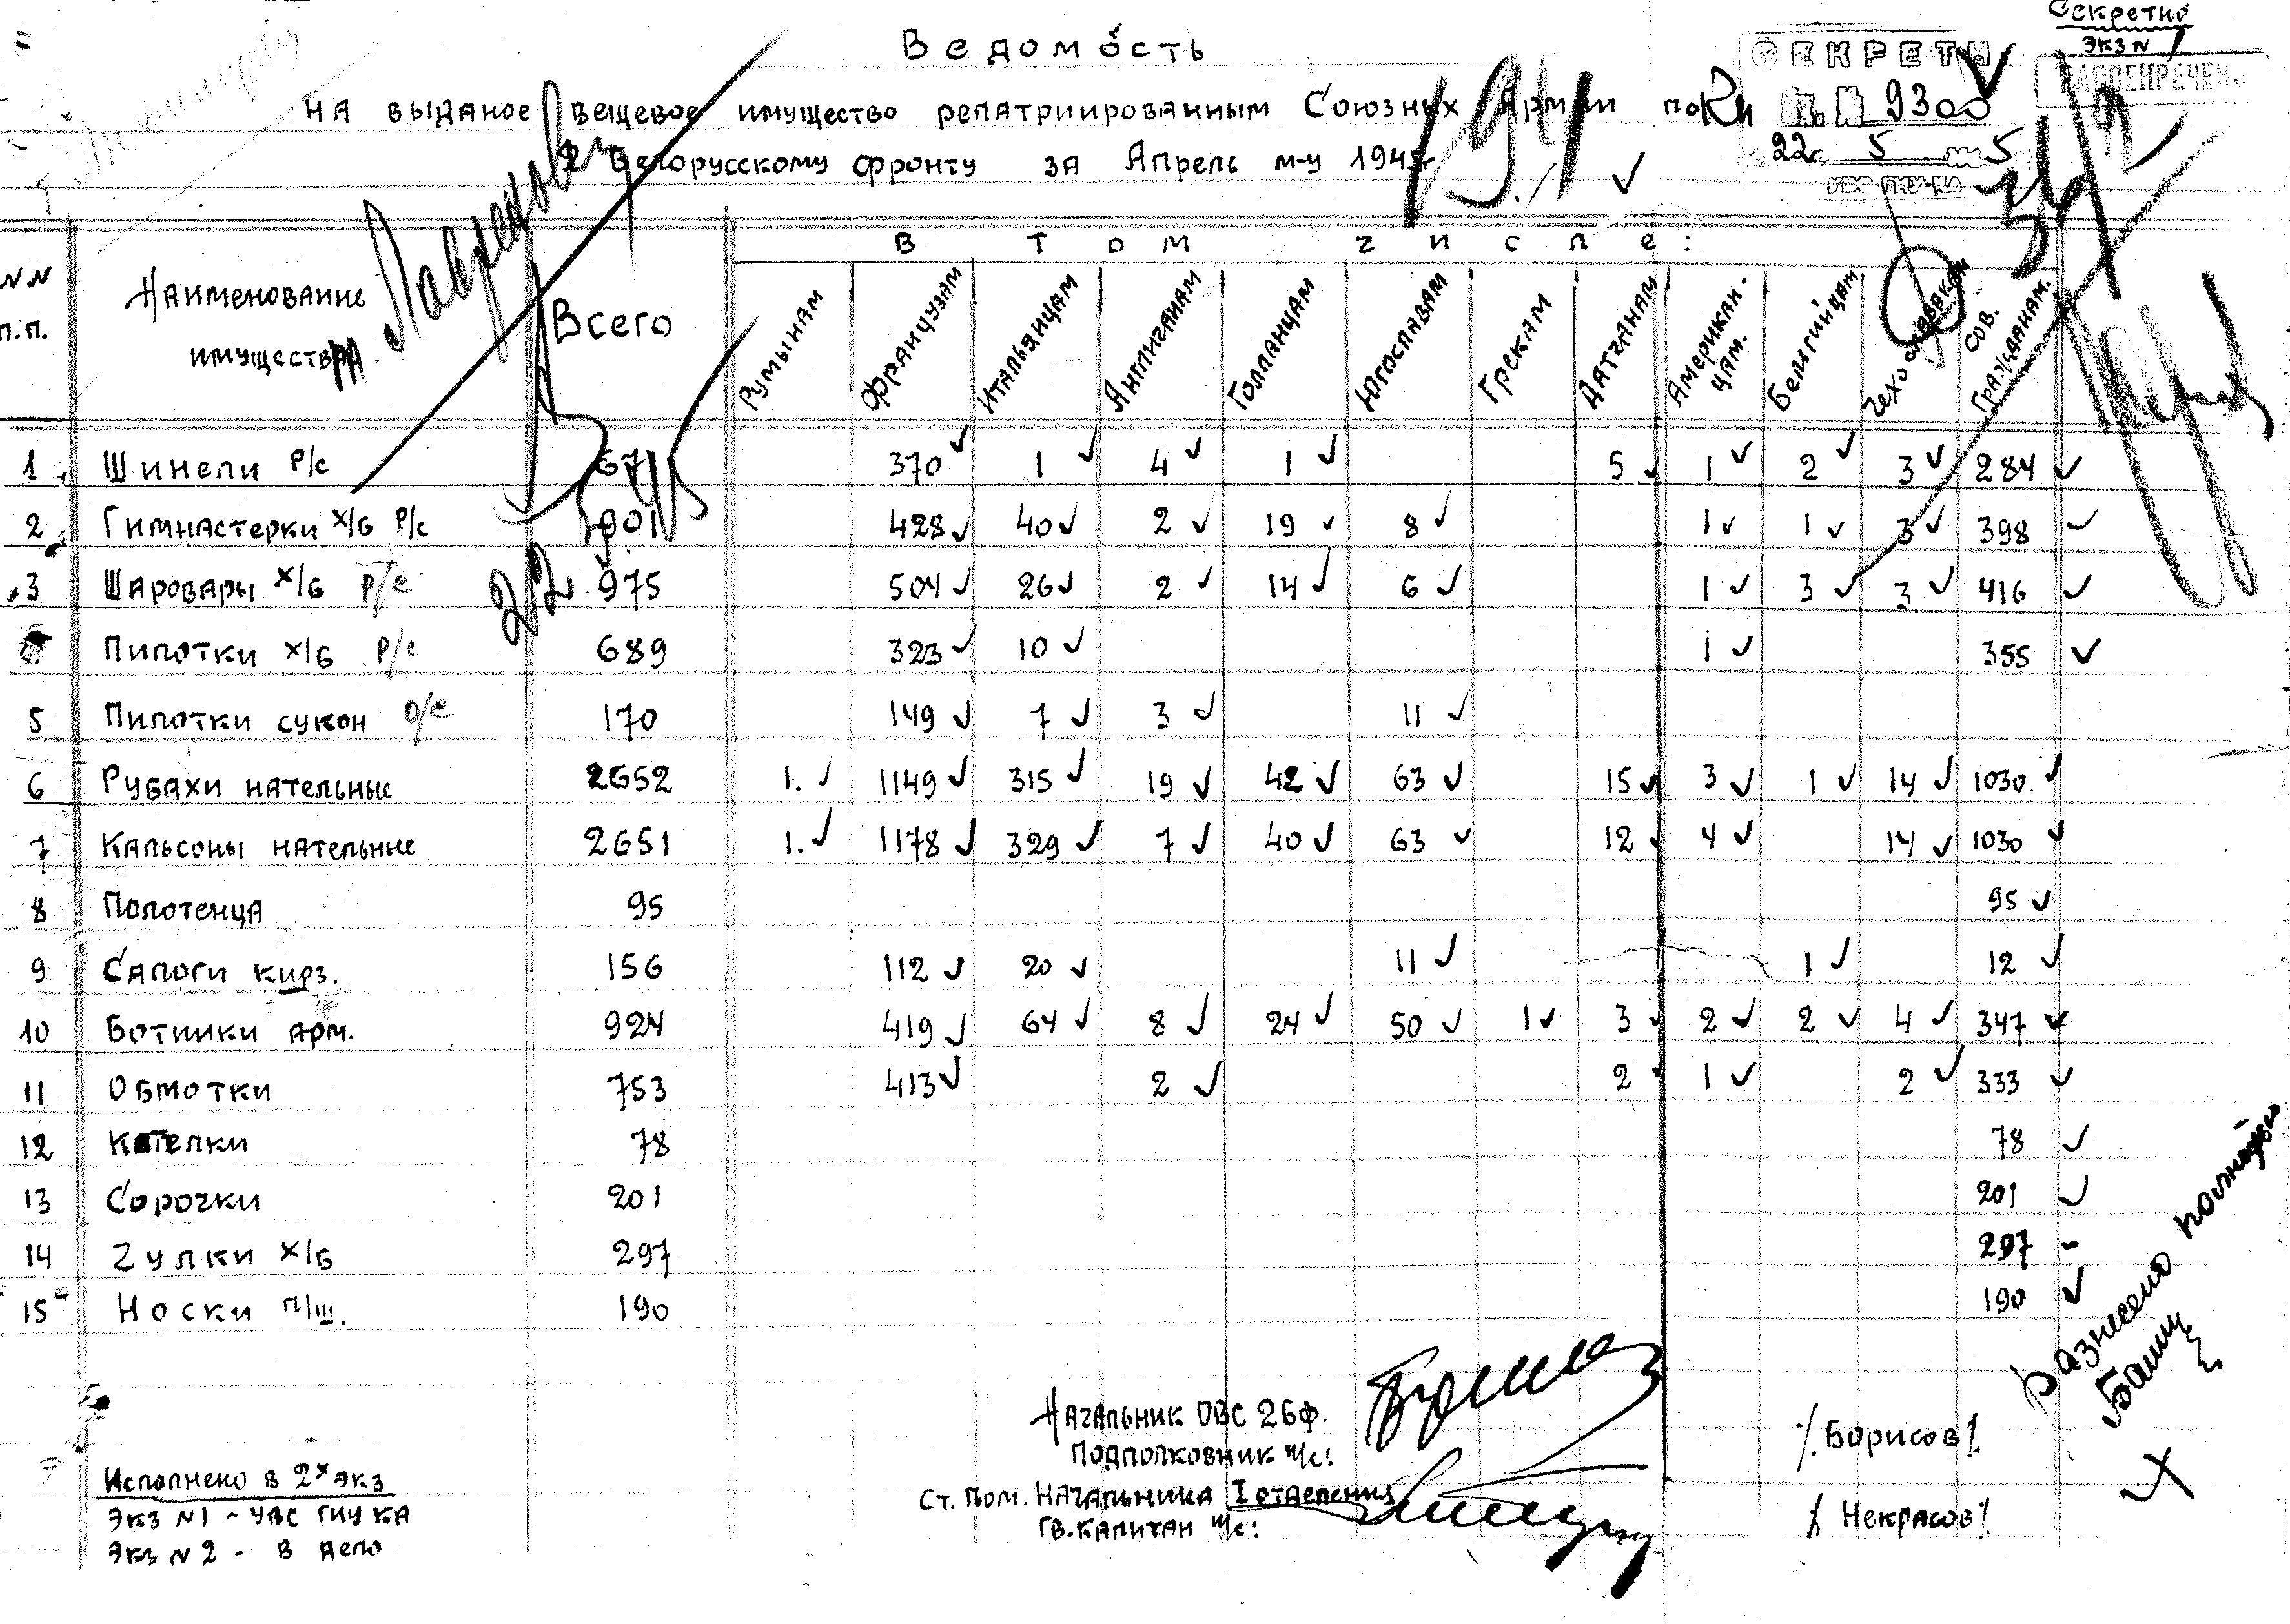 Секретно
экз N 1
СЕКРЕТН
РАССЕКРЕЧЕН
9300
22 5 5
Ведомость
на выданое вещевое имущество репатриированным Союзных Армии по
2 Белорусскому фронту за Апрель м-у 1945г
NN п.п. Наименование имущества Всего В том числе:
Румынам Французам Итальянцам Англичанам Голланцам Югославам Грекам Датчанам Американ-цам. Бельгийцам Чехословакам Сов. гражданам.
1 Шинели Р/с 671 370 1 4 1 5 1 2 3 284
2 Гимнастерки х/б Р/с 901 428 40 2 19 8 1 1 3 398
3 Шаровары х/б Р/с 975 504 26 2 14 6 1 3 3 416
Пилотки х/б Р/с 689 323 10 1 355
5 Пилотки сукон О/с 170 149 7 3 11
6 Рубахи нательные 2652 1. 1149 315 19 42 63 15 3 1 14 1030
7 Кальсоны нательные 2651 1. 1178 329 7 40 63 12 4 14 1030
8 Полотенца 95 95
9 Сапоги кирз. 156 112 20 11 1 12
10 Ботинки арм. 924 419 64 8 24 50 1 3 2 2 4 347
11 Обмотки 753 413 2 2 1 2 333
12 Котелки 78 78
13 Сорочки 201 201
14 Чулки х/б 297 297
15 Носки п/ш. 190 190
Начальник ОВС 2БФ.
Подполковник и/с: /Борисов/
Ст. пом. начальника I отделения
Гв. капитан и/с: /Некрасов/
Исполнено в 2х экз
Экз N1 - УВС ГИУ КА
Экз N2 - в дело
разнесено